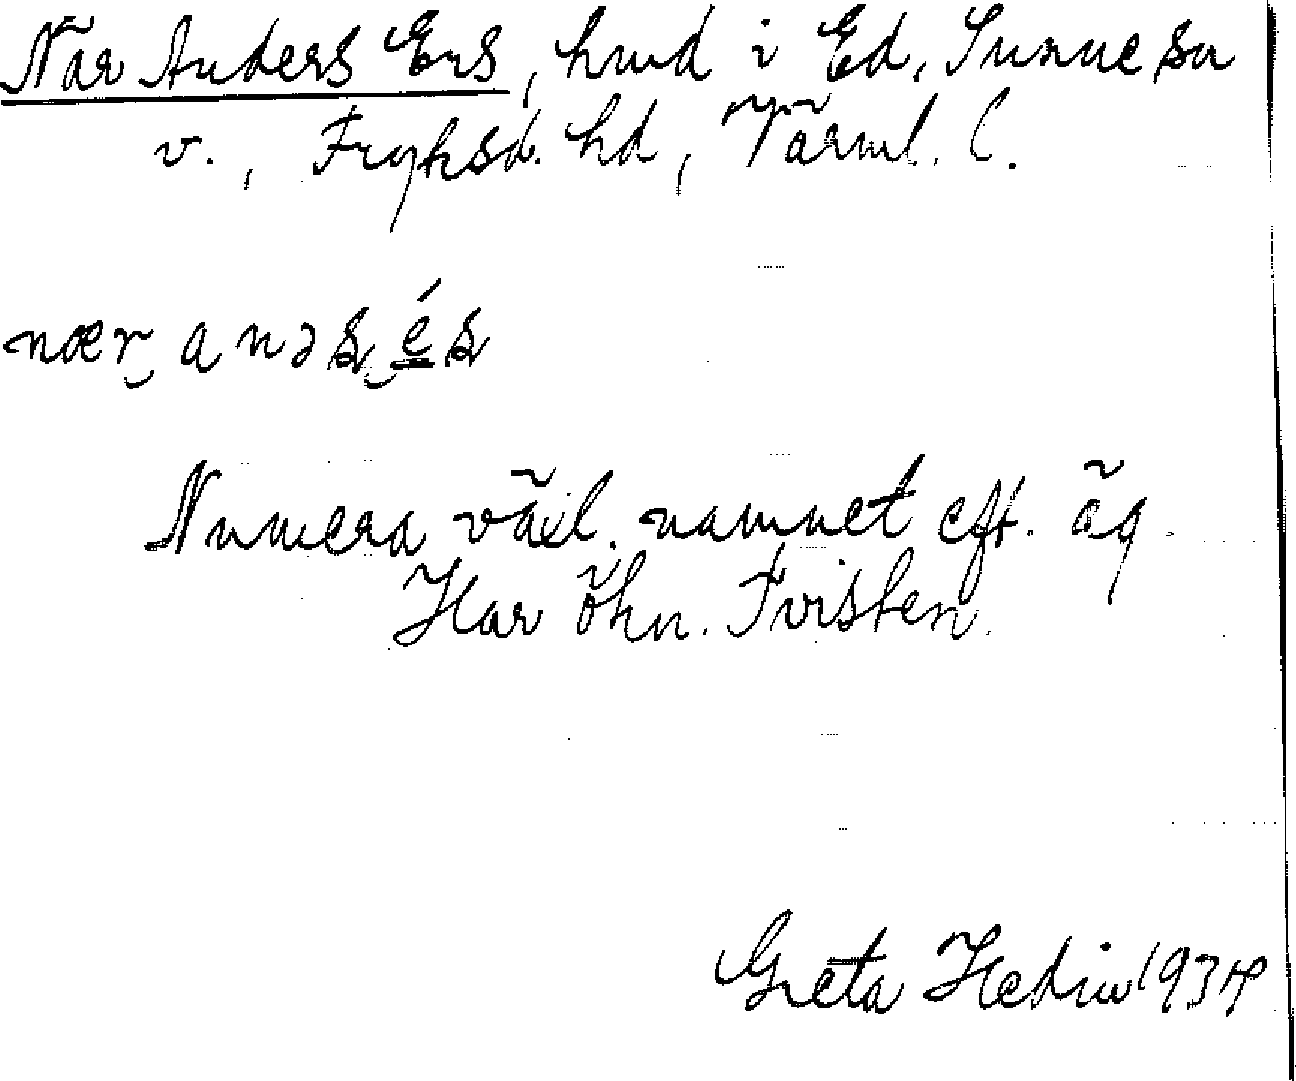 När Anders Ers, hmd i Ed, Sunne sn
v., Fryksd. hd, Värml. l.
nær anəs és
Numera växl. namnet eft. äg.
Har öhn. Tvisten.
Greta Hedin 1934